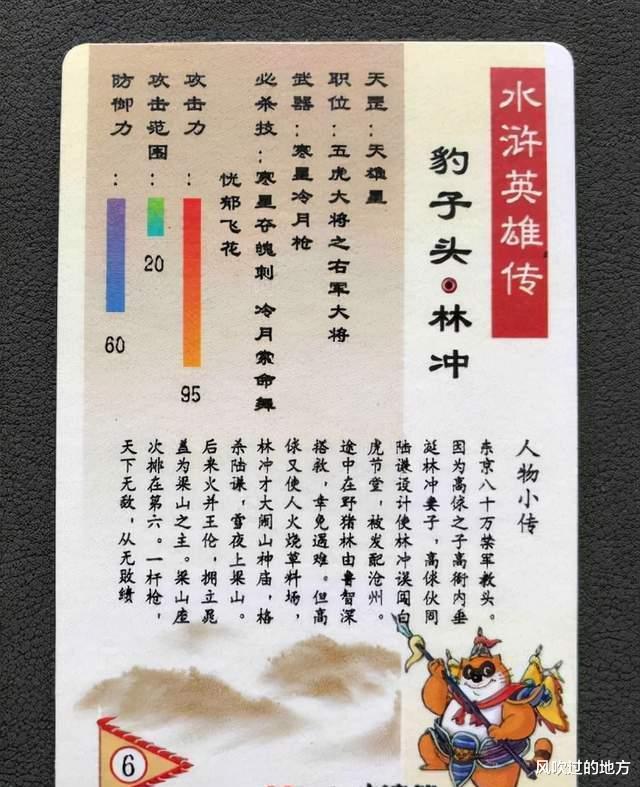 水浒英雄传
豹子头·林冲
天罡：天雄星
职位：五虎大将之右军大将
武器：寒星冷月枪
必杀技：寒星夺魄刺 冷月索命舞
恍郁飞花
攻击力：
95
攻击范围：
20
防御力：
60
人物小传
东京八十万禁军教头。
因为高俅之子高衙内垂
涎林冲妻子，高俅伙同
陆谦设计使林冲误闯白
虎节堂，被发配沧州。
途中在野猪林由鲁智深
搭救，幸免遇难。但高
俅又使人火烧草料场，
林冲才大闹山神庙，格
杀陆谦，雪夜上梁山。
后来火并王伦，拥立晁
盖为梁山之主。梁山座
次排在第六。一杆枪，
天下无敌，从无败绩
6
风吹过的地方